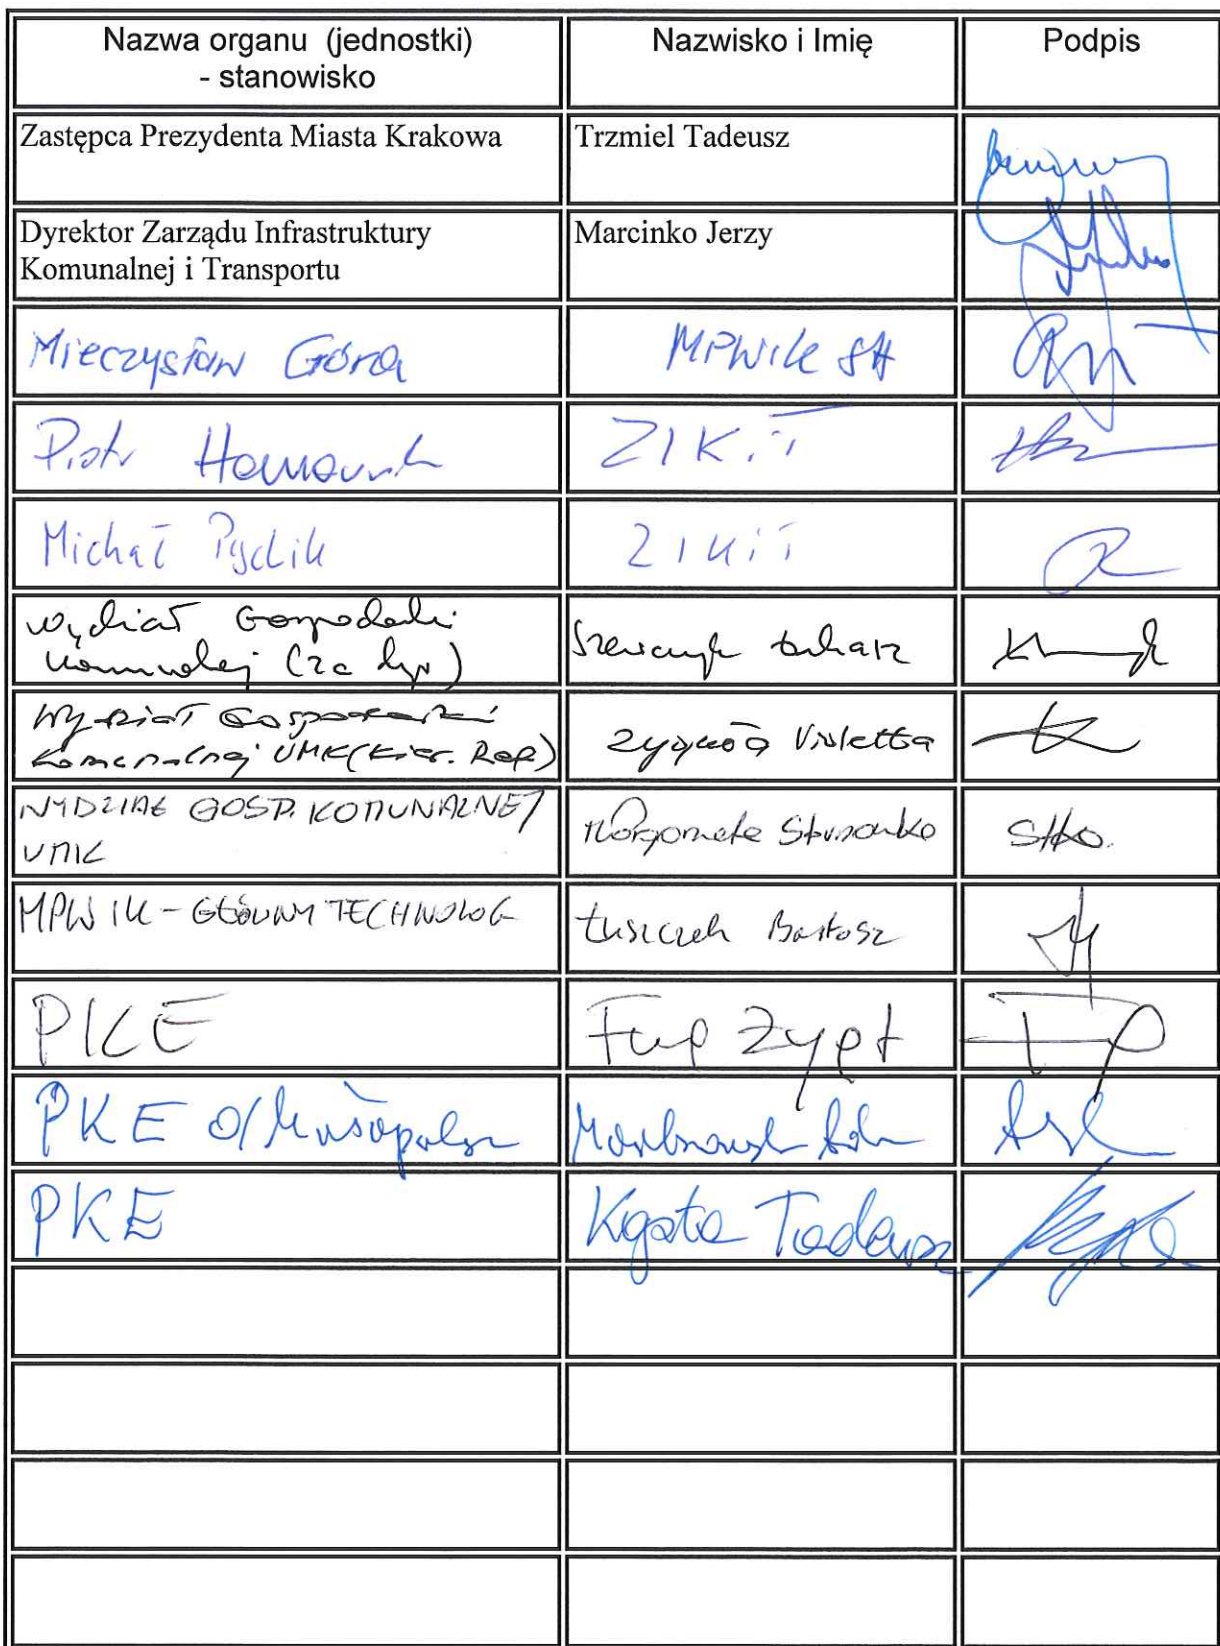 Nazwa organu (jednostki)
- stanowisko
Nazwisko i Imię
Podpis
Zastępca Prezydenta Miasta Krakowa
Trzmiel Tadeusz
Dyrektor Zarządu Infrastruktury
Komunalnej i Transportu
Marcinko Jerzy
Mieczysław Góra
MPWiK SA
Piotr
ZIKiT
Michał Pyclik
ZIKiT
Wydział Gospodarki
Komunalnej (zc dyr)
Szewczyk Łukasz
Wydział Gospodarki
Komunalnej UMK (Kier. Ref)
Violetta
WYDZIAŁ GOSP. KOMUNALNEJ
UMK
Małgorzata
MPWIK - GŁÓWNY TECHNOLOG
Łuszczek Bartosz
PKE
PKE O/Małopolska
PKE
Tadeusz